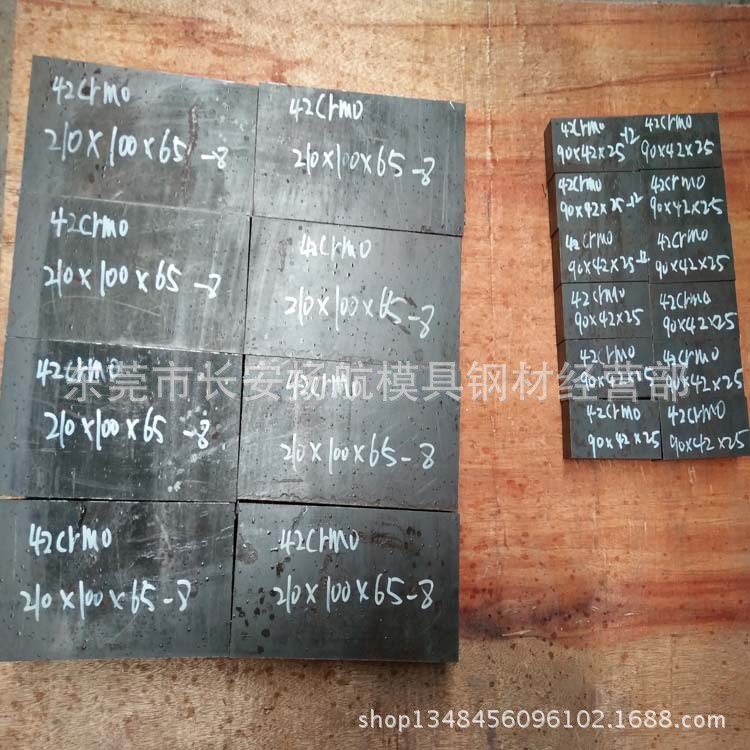 42crmo
210×100×65-8
42crmo
210×100×65-8
42crmo
210×100×65-8
42crmo
210×100×65-8
42crmo
210×100×65-8
42crmo
210×100×65-8
42crmo
210×100×65-8
42crmo
210×100×65-8
42crmo
90×42×25-12
42crmo
90×42×25
42crmo
90×42×25-12
42crmo
90×42×25
42crmo
90×42×25
42crmo
90×42×25
42crmo
90×42×25
42crmo
90×42×25
42crmo
90×42×25
42crmo
90×42×25
42crmo
90×42×25
42crmo
90×42×25
东莞市长安杨航模具钢材经营部
shop1348456096102.1688.com